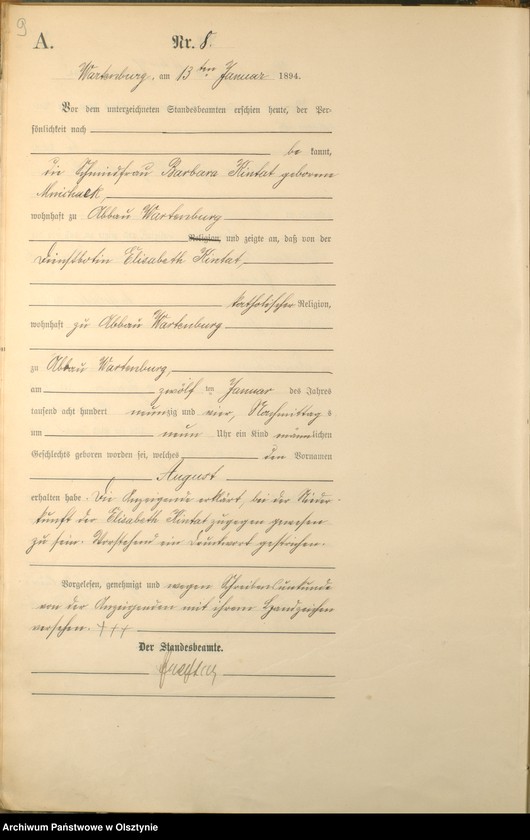 9
A.
Nr. 8.
Wartenburg, am 13 ten Januar 1894.
Vor dem unterzeichneten Standesbeamten erschien heute, der Per-
sönlichkeit nach
be kannt,
die Schmiedfrau Barbara Kintat geborene
Mnichalk,
wohnhaft zu Abbau Wartenburg
Religion, und zeigte an, daß von der
Dienstbotin Elisabeth Kintat,
katholischer Religion,
wohnhaft zu Abbau Wartenburg
zu Abbau Wartenburg,
am zwölf ten Januar des Jahres
tausend acht hundert neunzig und vier, Nachmittag s
um neun Uhr ein Kind männlichen
Geschlechts geboren worden sei, welches den Vornamen
August
erhalten habe. Die Anzeigende erklärt, bei der Nieder-
kunft der Elisabeth Kintat zugegen gewesen
zu sein. Vorstehend ein Druckwort gestrichen.
Vorgelesen, genehmigt und wegen Schreibensunkunde
von der Anzeigenden mit ihrem Handzeichen
versehen. +++
Der Standesbeamte.
Archiwum Państwowe w Olsztynie